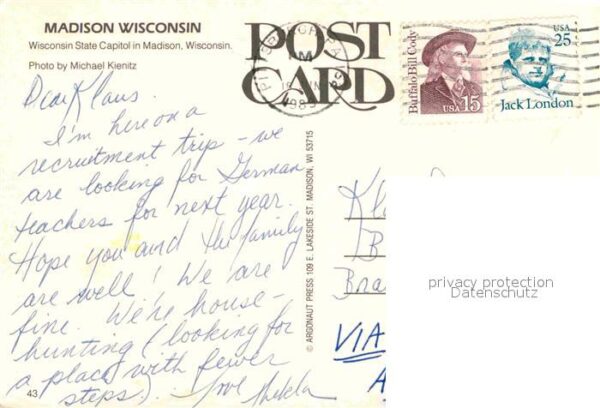 MADISON WISCONSIN
Wisconsin State Capitol in Madison, Wisconsin.
Photo by Michael Kienitz
Dear Klaus.
I'm here on a
recruitment trip - we
are looking for German
teachers for next year.
Hope you and the family
are well! We are
fine. We're house-
hunting (looking for
a place with fewer
steps). Love Thekla
43
© ARGONAUT PRESS 109 E. LAKESIDE ST. MADISON, WI 53715
POST
CARD
PITTSBURGH PA
1989
Buffalo Bill Cody
USA 15
USA
25
Jack London
Kl
B
Bra
VIA
A
privacy protection
Datenschutz